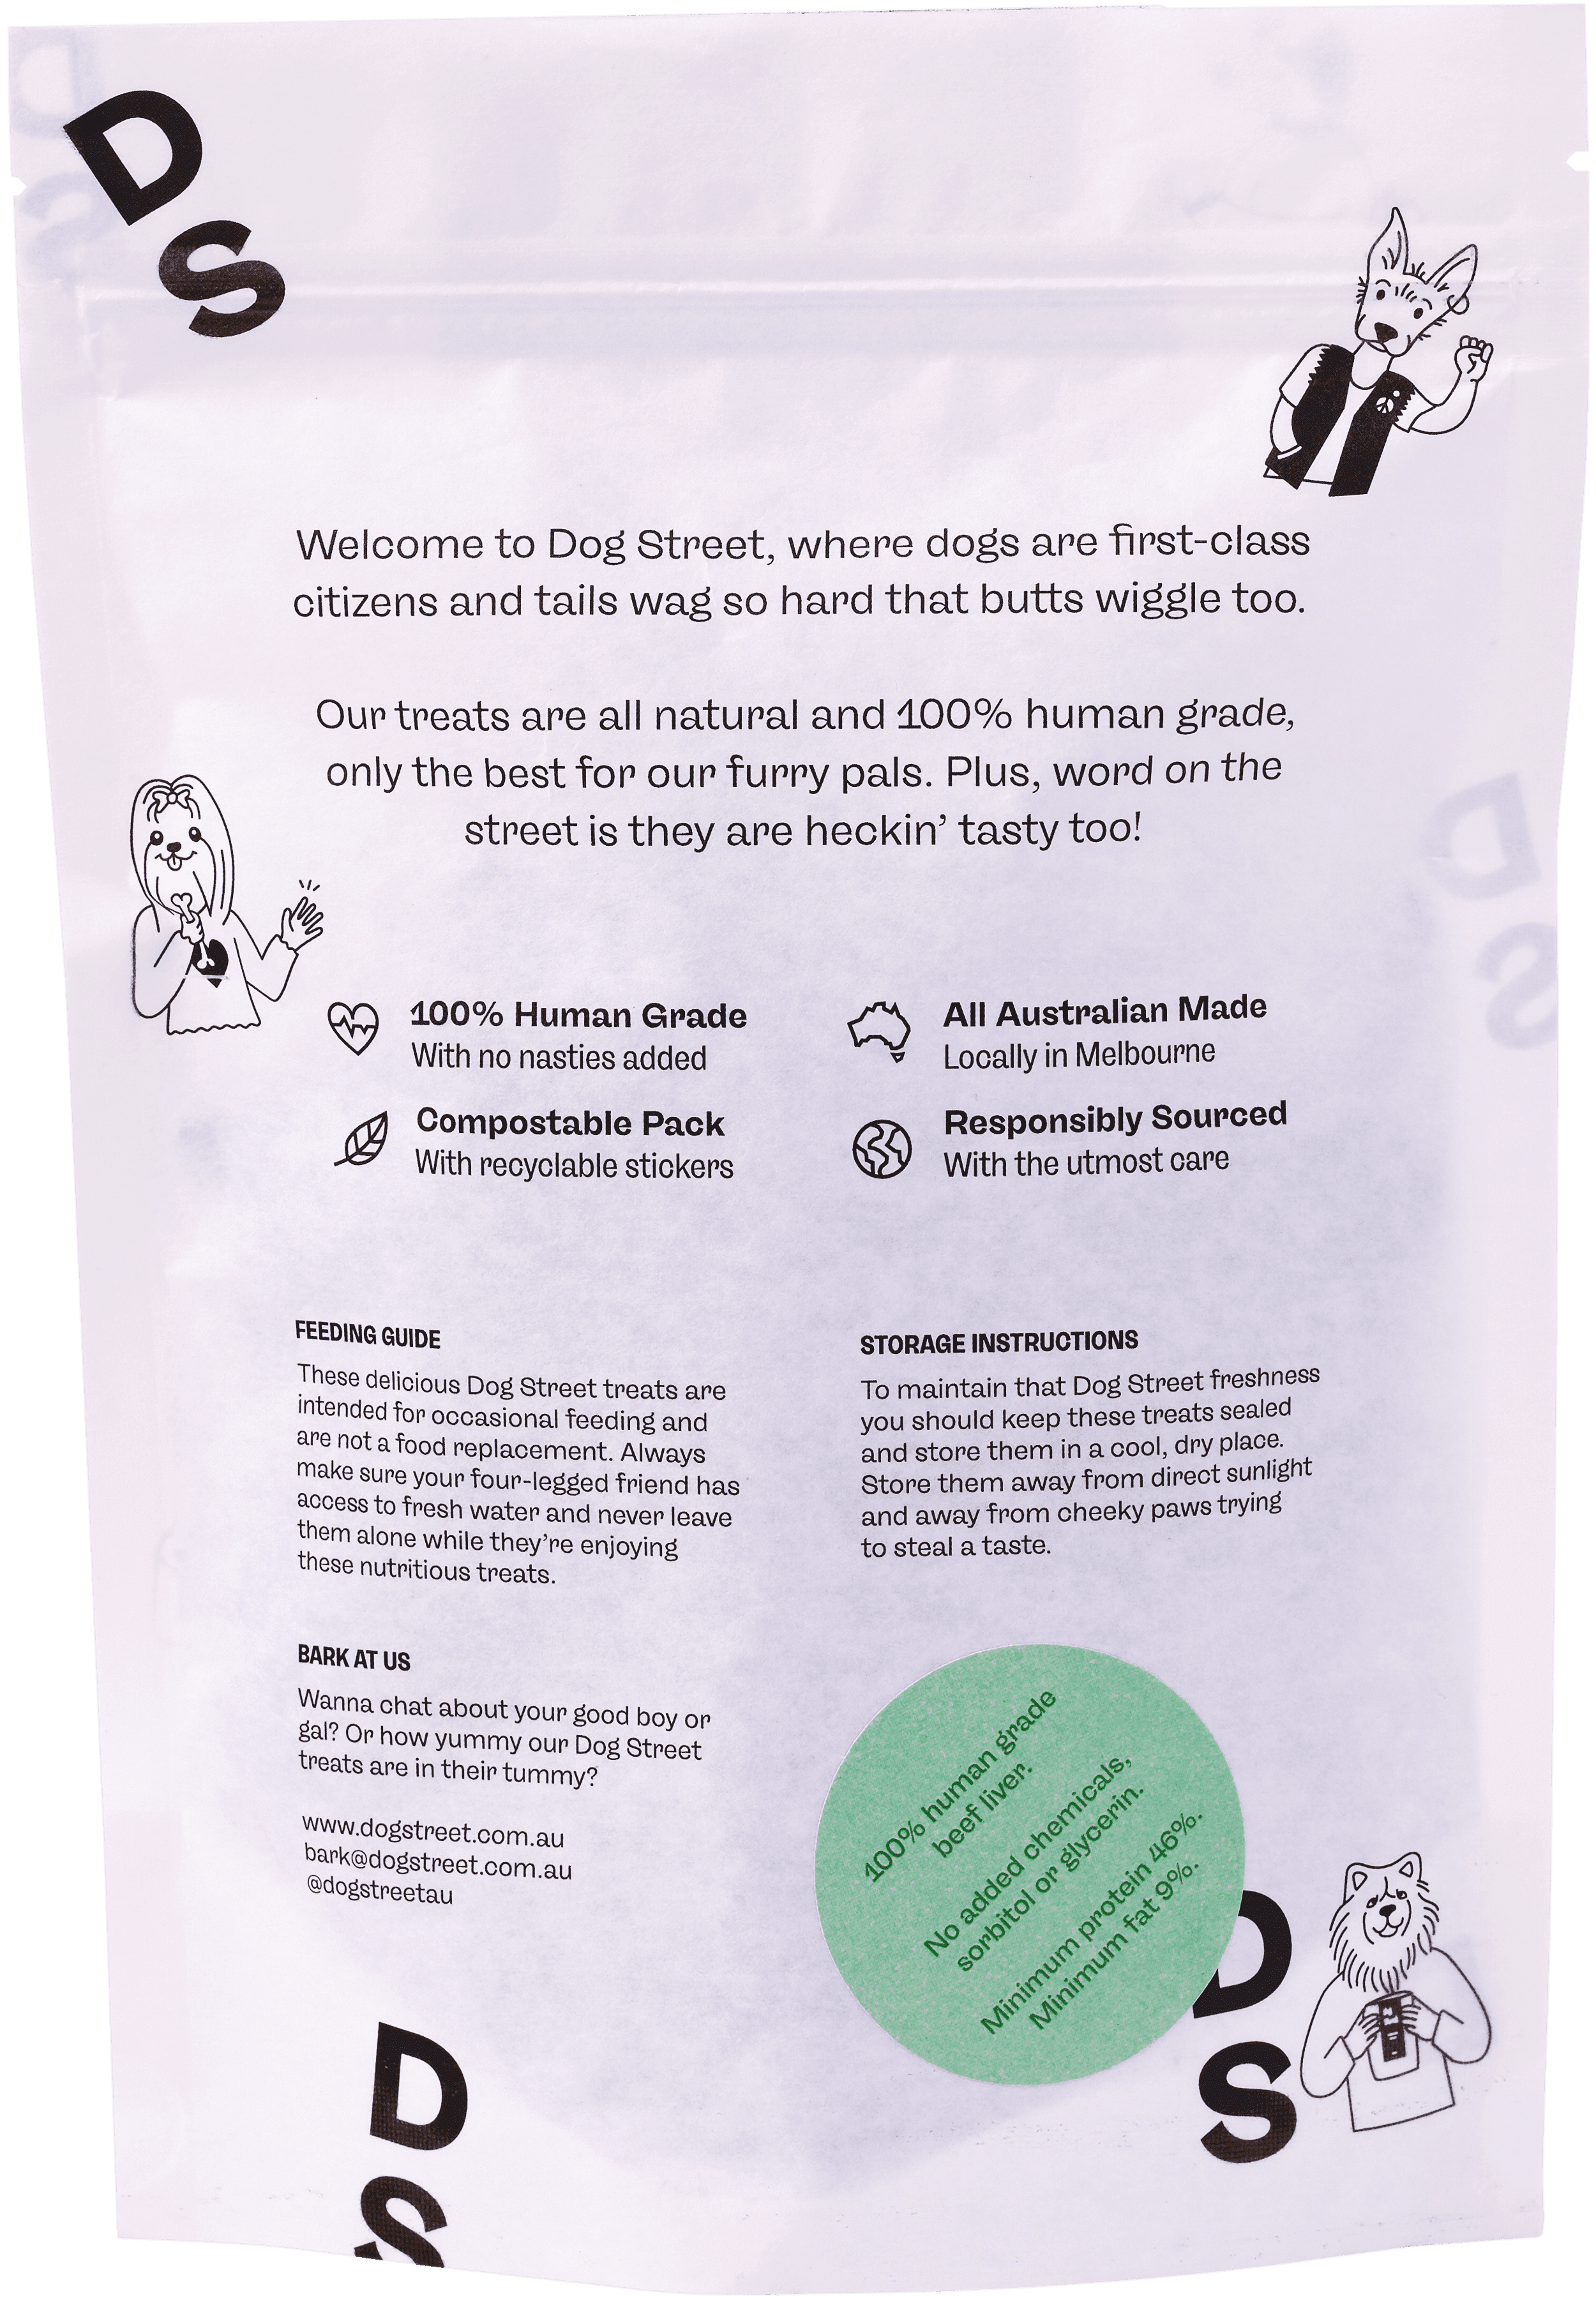 D
S
Welcome to Dog Street, where dogs are first-class
citizens and tails wag so hard that butts wiggle too.
Our treats are all natural and 100% human grade,
only the best for our furry pals. Plus, word on the
street is they are heckin’ tasty too!
100% Human Grade
With no nasties added
All Australian Made
Locally in Melbourne
Compostable Pack
With recyclable stickers
Responsibly Sourced
With the utmost care
FEEDING GUIDE
These delicious Dog Street treats are
intended for occasional feeding and
are not a food replacement. Always
make sure your four-legged friend has
access to fresh water and never leave
them alone while they’re enjoying
these nutritious treats.
STORAGE INSTRUCTIONS
To maintain that Dog Street freshness
you should keep these treats sealed
and store them in a cool, dry place.
Store them away from direct sunlight
and away from cheeky paws trying
to steal a taste.
BARK AT US
Wanna chat about your good boy or
gal? Or how yummy our Dog Street
treats are in their tummy?
www.dogstreet.com.au
bark@dogstreet.com.au
@dogstreetau
100% human grade
beef liver.
No added chemicals,
sorbitol or glycerin.
Minimum protein 46%.
Minimum fat 9%.
D
S
D
S